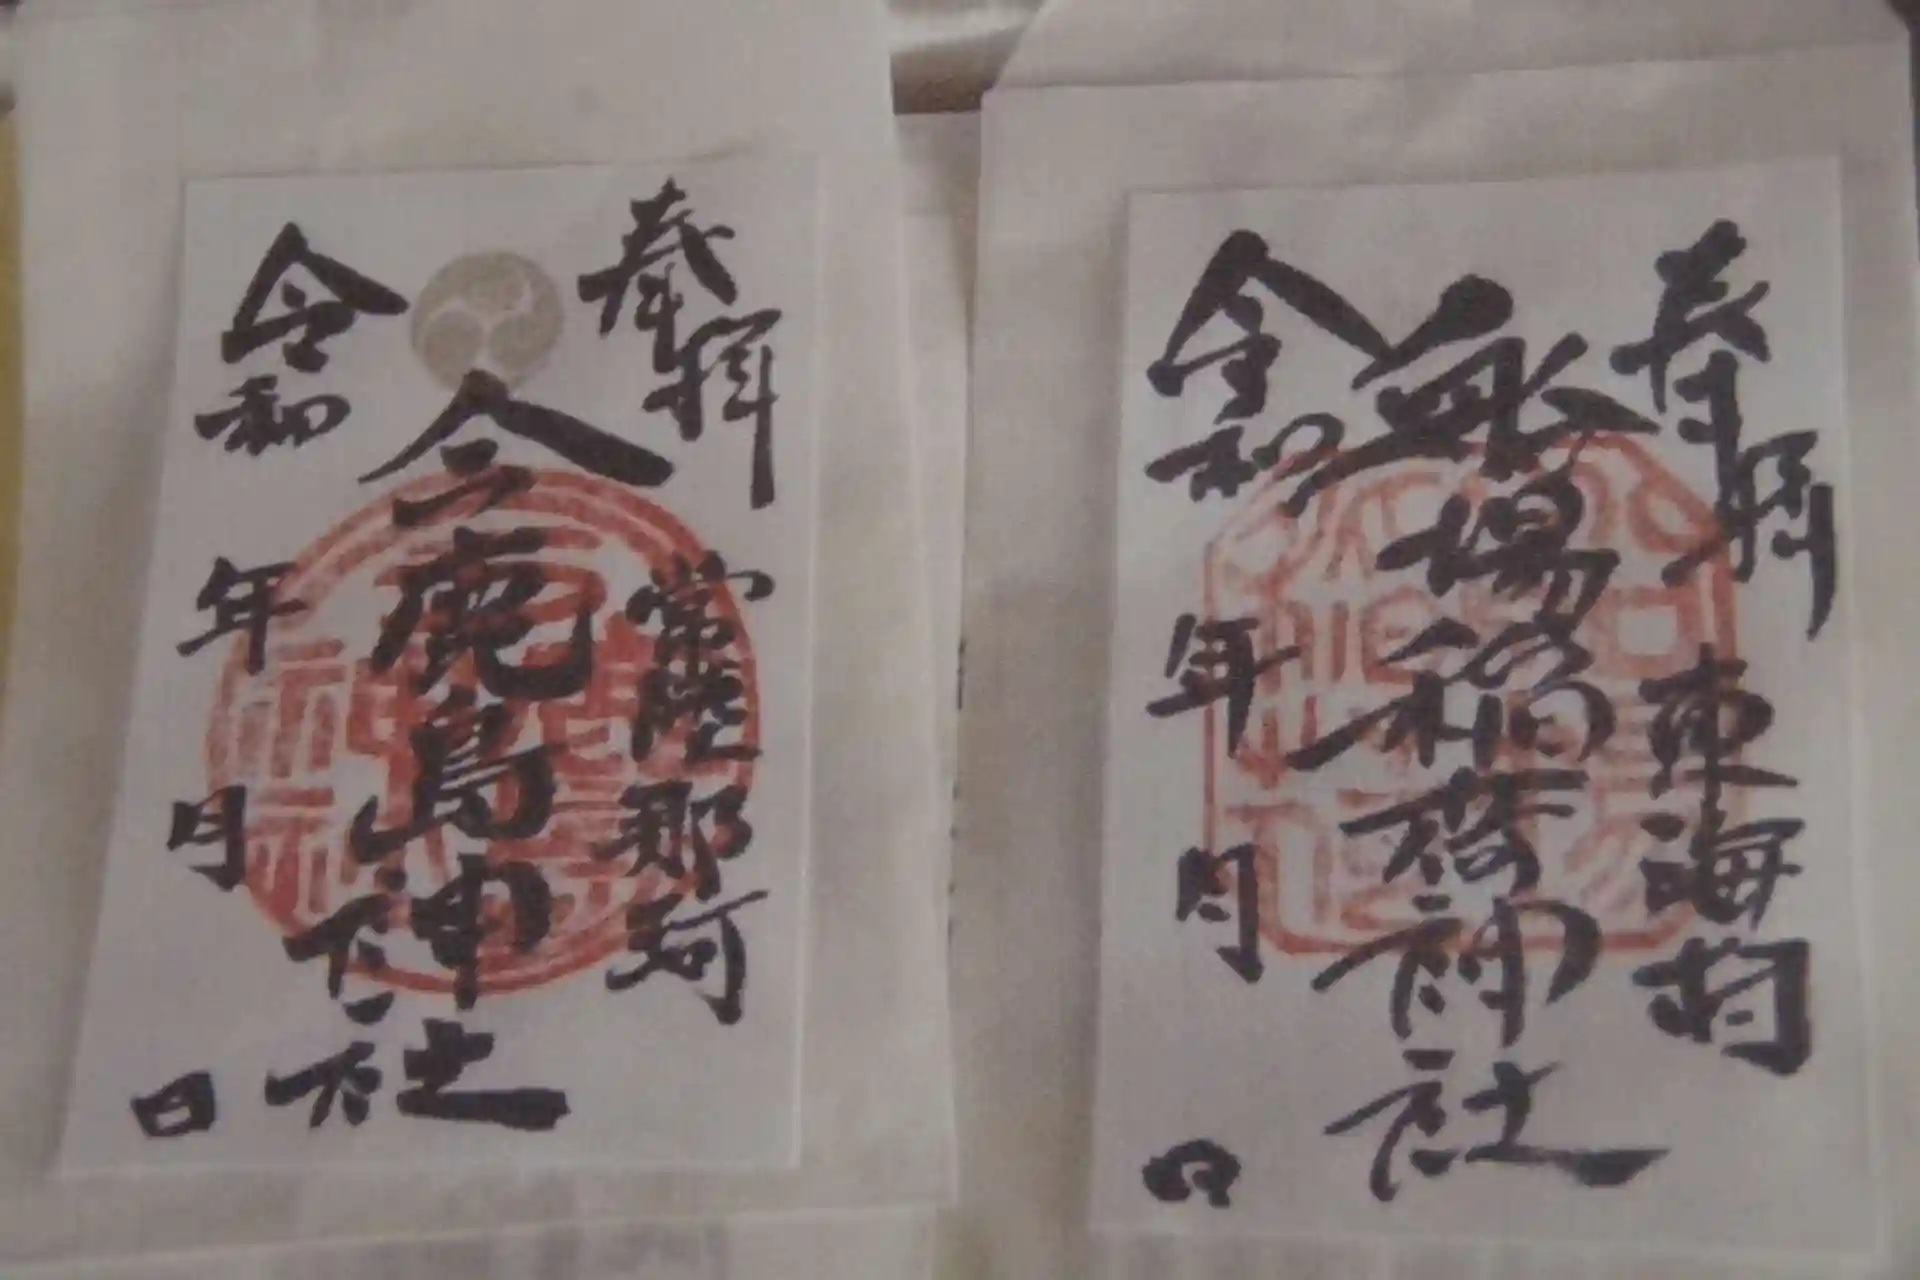 奉拝
常陸那珂
今鹿島神社
令和 年 月 日
奉拝
東海村
場稲荷神社
令和 年 月 日